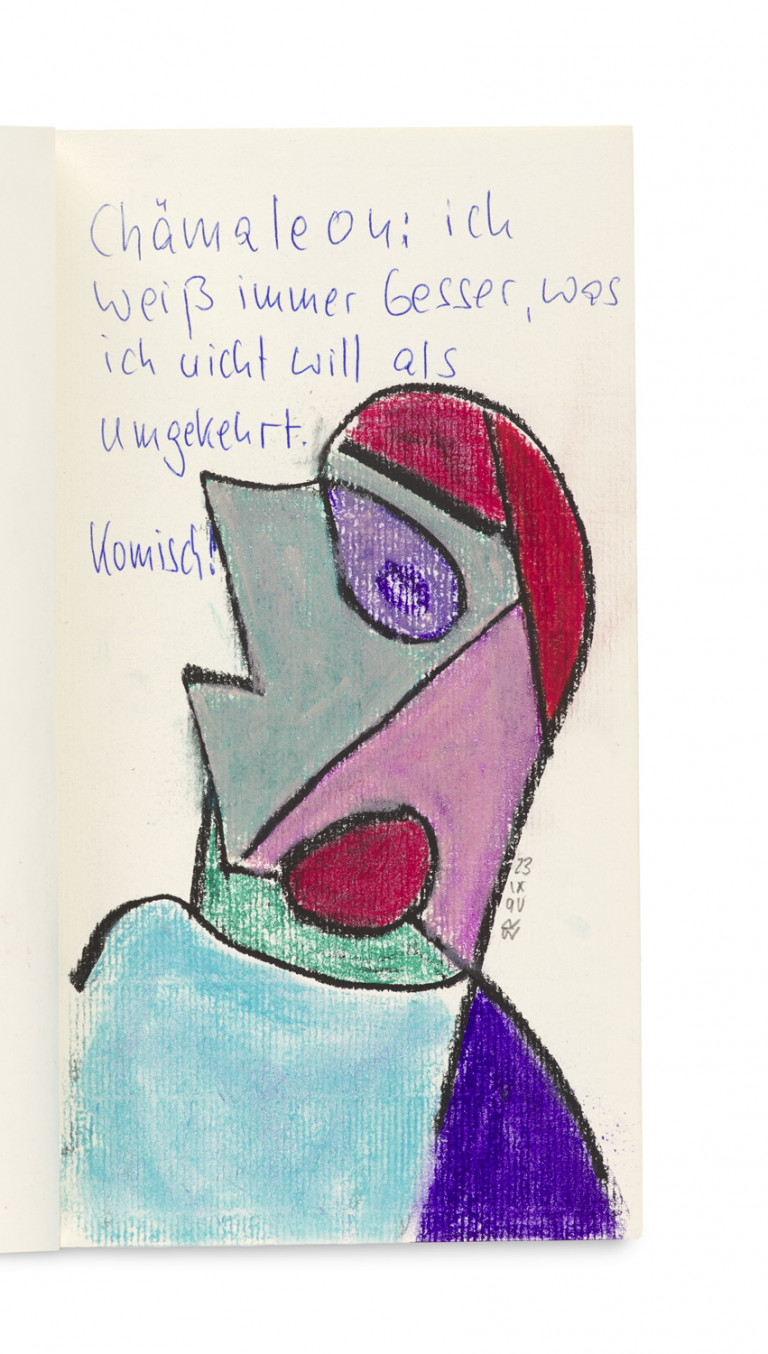 Chämaleon: ich
weiß immer besser, was
ich nicht will als
umgekehrt.
Komisch!
23
IX